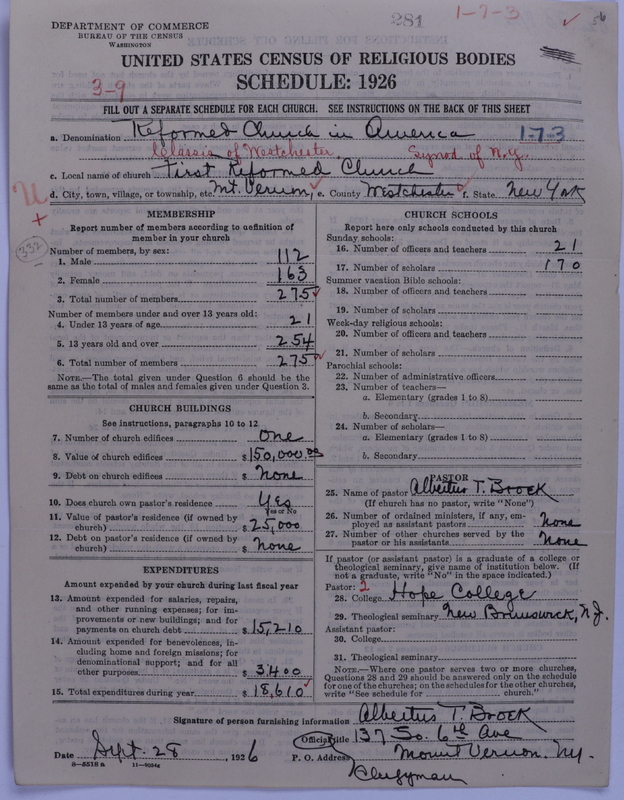 DEPARTMENT OF COMMERCE
BUREAU OF THE CENSUS
WASHINGTON
281
1-7-3
56
UNITED STATES CENSUS OF RELIGIOUS BODIES
SCHEDULE: 1926
3-9
FILL OUT A SEPARATE SCHEDULE FOR EACH CHURCH. SEE INSTRUCTIONS ON THE BACK OF THIS SHEET
a. Denomination Reformed Church in America 1-7-3
Classis of Westchester Synod of N.Y.
c. Local name of church First Reformed Church
d. City, town, village, or township, etc. Mt. Vernon e. County Westchester f. State New York
332
MEMBERSHIP
Report number of members according to definition of member in your church
Number of members, by sex:
1. Male 112
2. Female 163
3. Total number of members 275
Number of members under and over 13 years old:
4. Under 13 years of age 21
5. 13 years old and over 254
6. Total number of members 275
NOTE.—The total given under Question 6 should be the
same as the total of males and females given under Question 3.
CHURCH BUILDINGS
See instructions, paragraphs 10 to 12
7. Number of church edifices One
8. Value of church edifices $150,000.00
9. Debt on church edifices $ None
10. Does church own pastor's residence Yes
Yes or No
11. Value of pastor's residence (if owned by
church) $25,000
12. Debt on pastor's residence (if owned by
church) $ None
EXPENDITURES
Amount expended by your church during last fiscal year
13. Amount expended for salaries, repairs,
and other running expenses; for im-
provements or new buildings; and for
payments on church debt $15,210
14. Amount expended for benevolences, in-
cluding home and foreign missions; for
denominational support; and for all
other purposes $3400
15. Total expenditures during year $18,610
CHURCH SCHOOLS
Report here only schools conducted by this church
Sunday schools:
16. Number of officers and teachers 21
17. Number of scholars 170
Summer vacation Bible schools:
18. Number of officers and teachers
19. Number of scholars
Week-day religious schools:
20. Number of officers and teachers
21. Number of scholars
Parochial schools:
22. Number of administrative officers
23. Number of teachers—
a. Elementary (grades 1 to 8)
b. Secondary
24. Number of scholars—
a. Elementary (grades 1 to 8)
b. Secondary
PASTOR
25. Name of pastor Albertus T. Broek
(If church has no pastor, write "None")
26. Number of ordained ministers, if any, em-
ployed as assistant pastors None
27. Number of other churches served by the
pastor or his assistants None
If pastor (or assistant pastor) is a graduate of a college or
theological seminary, give name of institution below. (If
not a graduate, write "No" in the space indicated.)
Pastor: 2
28. College Hope College
29. Theological seminary New Brunswick, N.J.
Assistant pastor:
30. College
31. Theological seminary
NOTE.—Where one pastor serves two or more churches,
Questions 28 and 29 should be answered only on the schedule
for one of the churches; on the schedules for the other churches,
write "See schedule for church."
Signature of person furnishing information Albertus T. Broek
Official title 137 So. 6th Ave
Date Sept. 28, 1926 P. O. Address Mount Vernon. N.Y.
Clergyman
8-5518 a